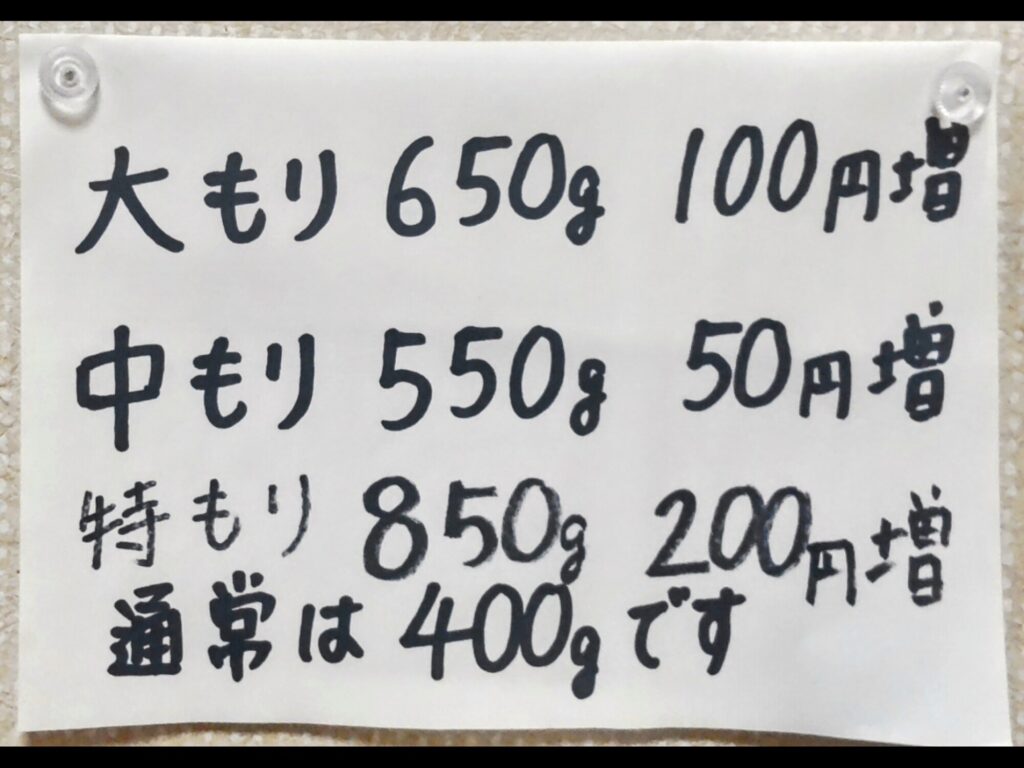 大もり 650g 100円増
中もり 550g 50円増
特もり 850g 200円増
通常は 400gです